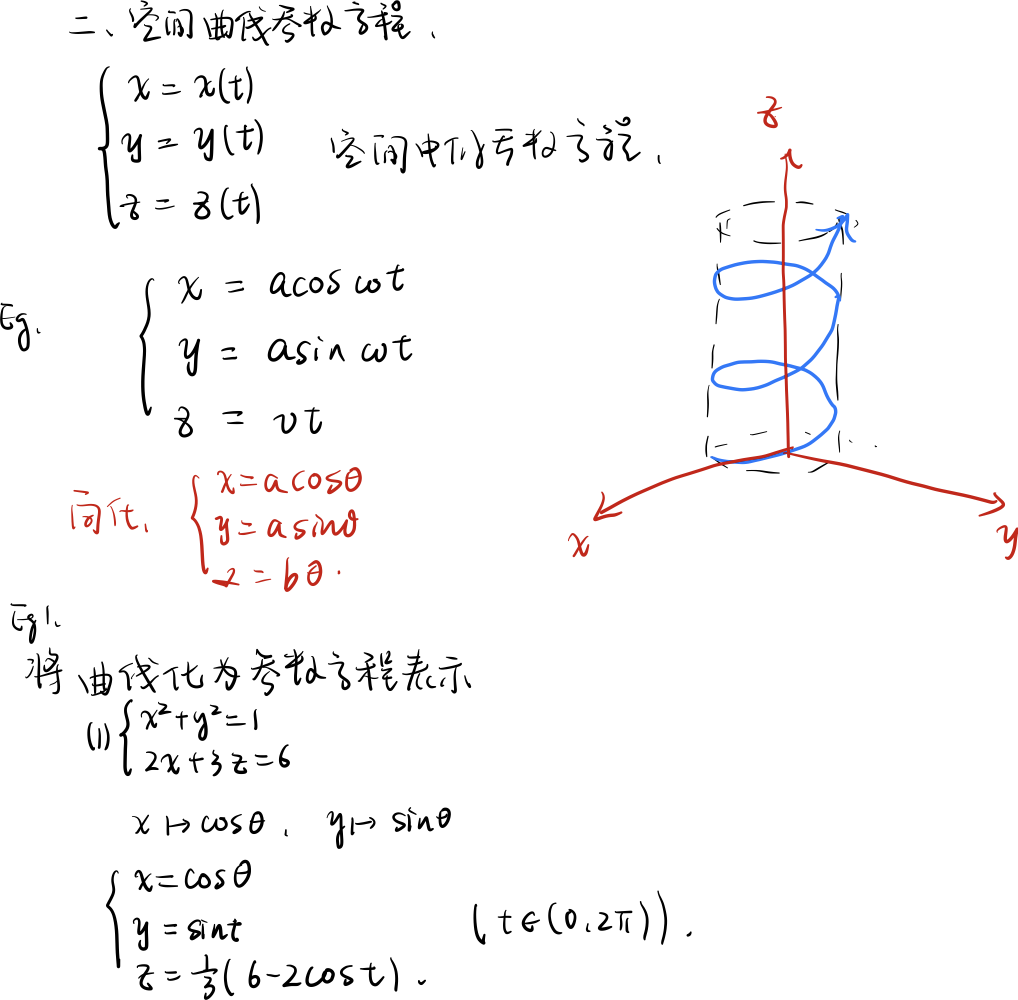 二、空间曲线参数方程.
x = x(t)
y = y(t) 空间中的参数方程.
z = z(t)
z
Eg. x = acos ωt
y = asin ωt
z = vt
简化. x=acosθ
y=asinθ
z=bθ.
x
y
Eg1.
将曲线化为参数方程表示
(1) x²+y²=1
2x+3z=6
x ↦ cosθ. y ↦ sinθ
x=cosθ
y=sint (t∈(0,2π)).
z=1/3(6-2cost).